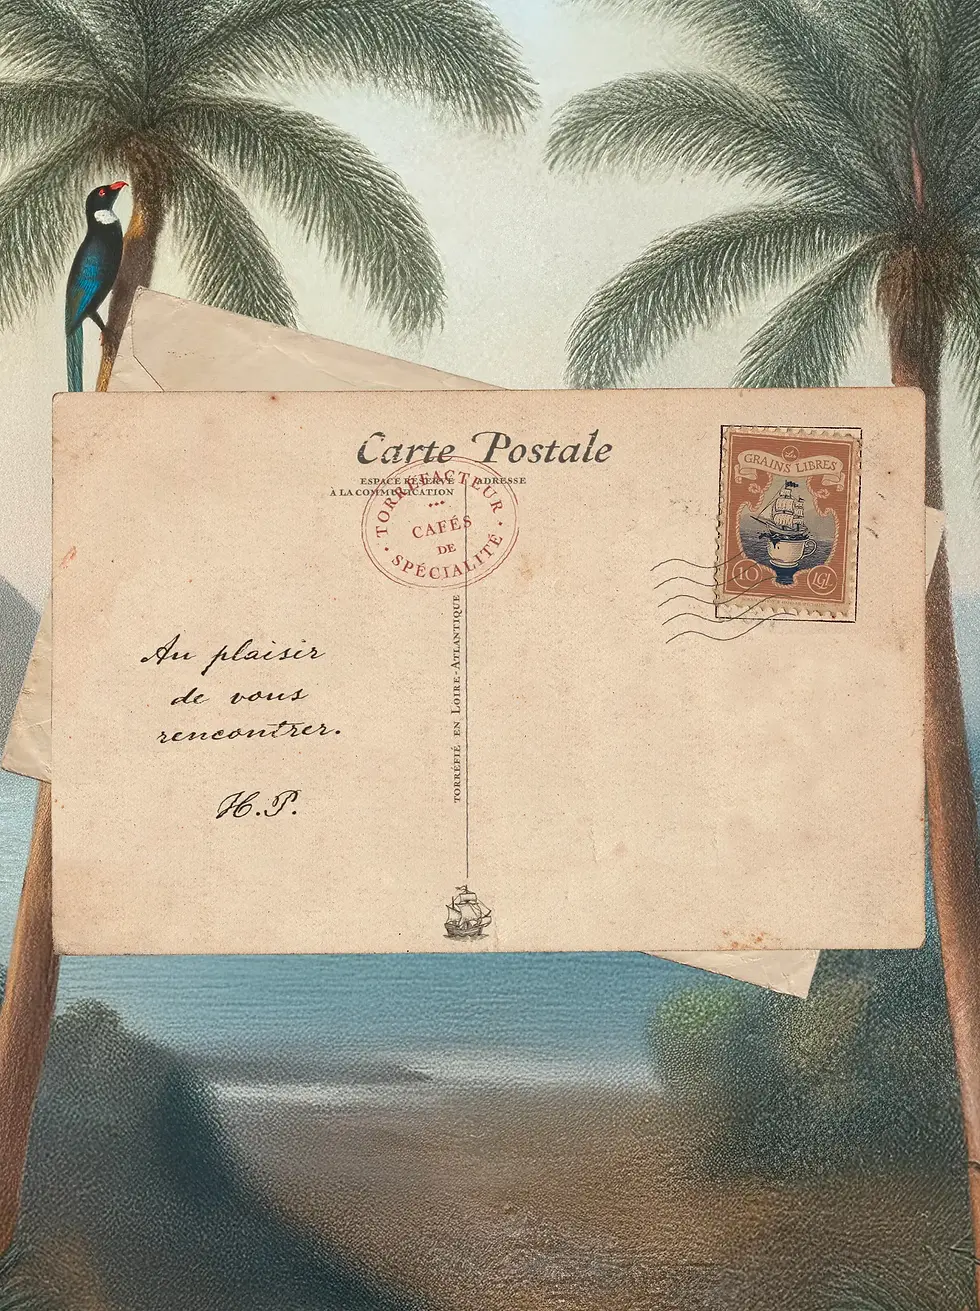 Carte Postale
ESPACE RÉSERVÉ
À LA COMMUNICATION
ADRESSE
TORRÉFACTEUR
CAFÉS
DE
SPÉCIALITÉ
Les
GRAINS LIBRES
10
LGL
TORRÉFIÉ EN LOIRE-ATLANTIQUE
Au plaisir
de vous
rencontrer.
H.P.